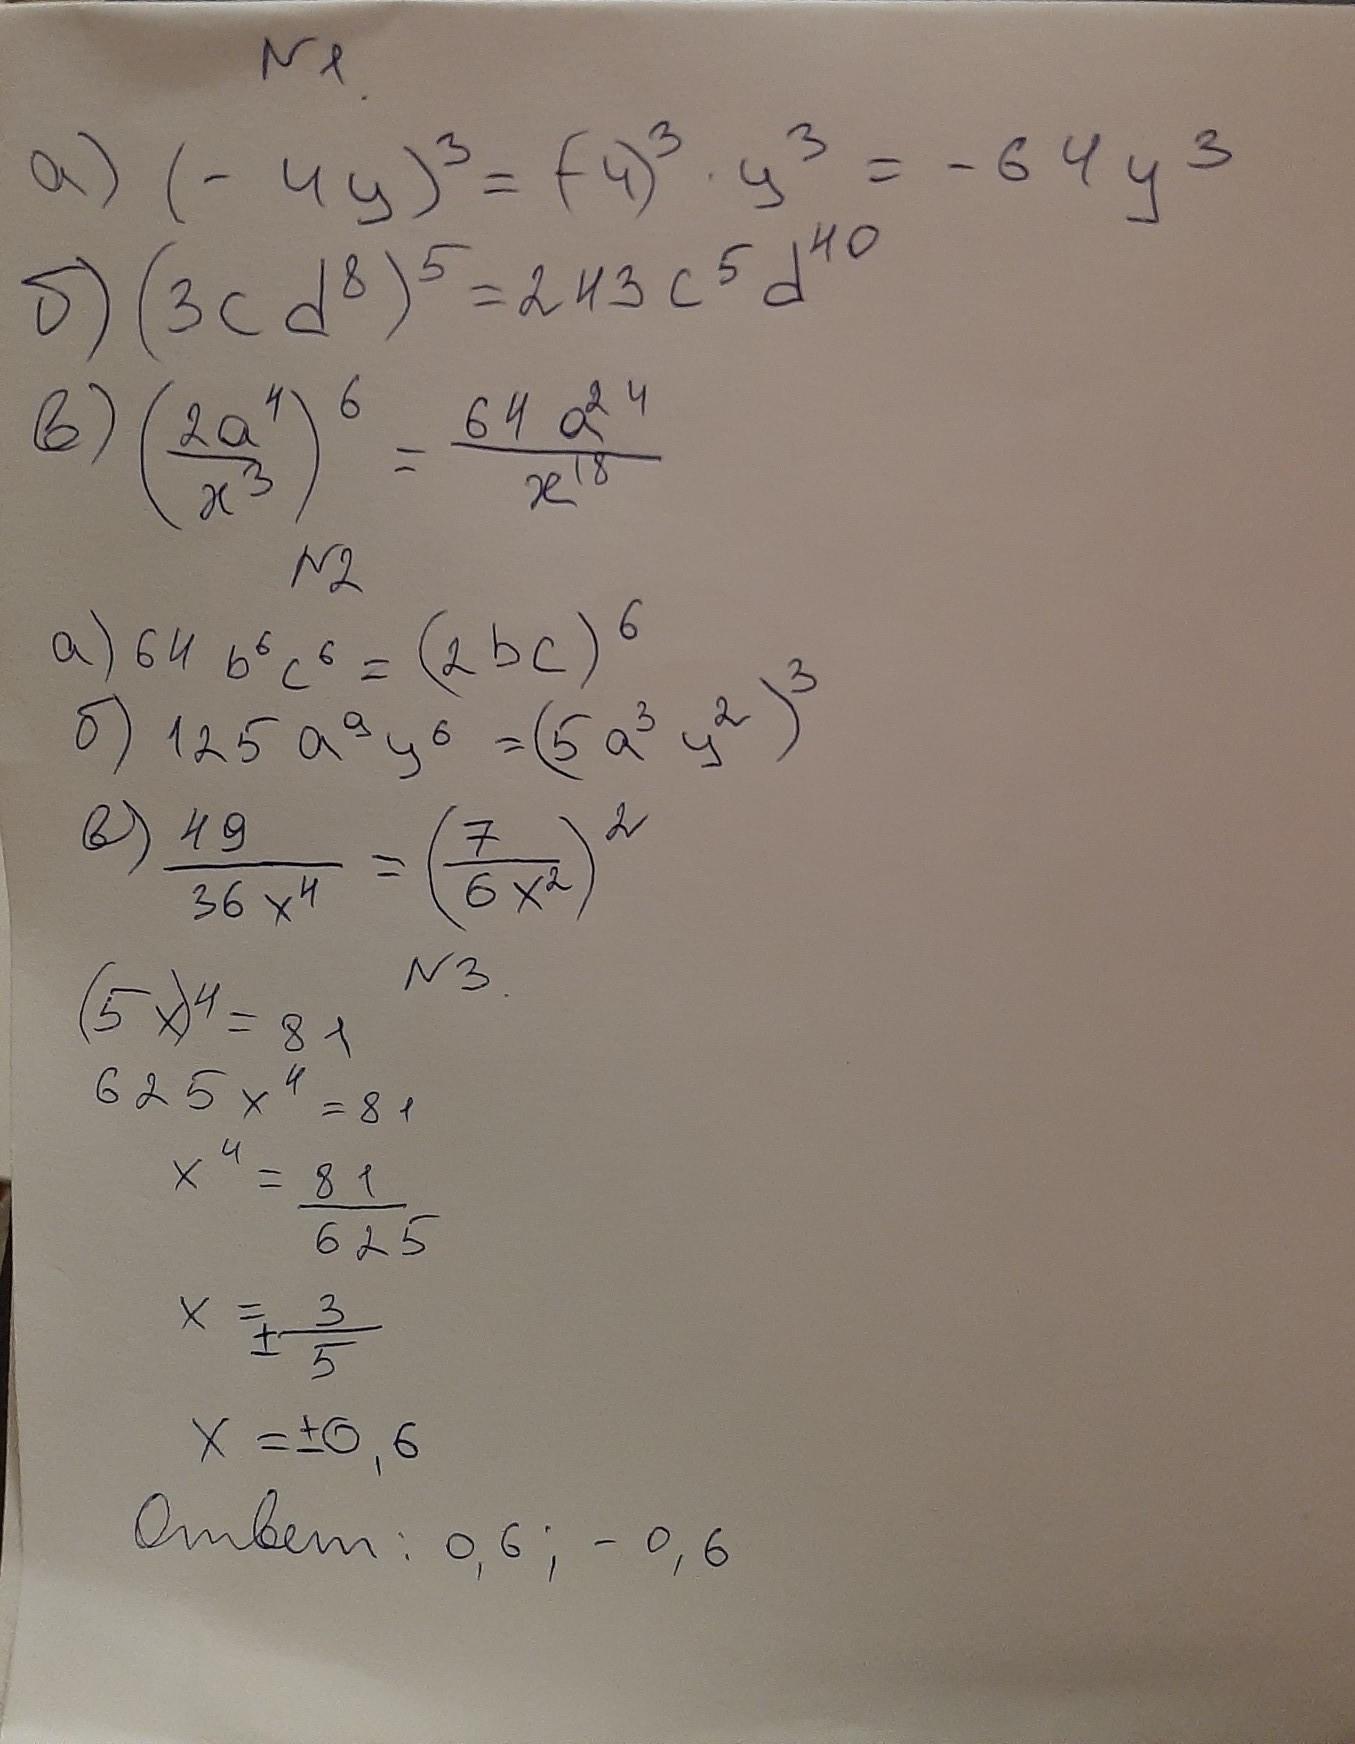 N1.
а) (-4y)³ = (-4)³ · y³ = -64y³
б) (3cd⁸)⁵ = 243c⁵d⁴⁰
в) (2a⁴/x³)⁶ = 64a²⁴/x¹⁸
N2
а) 64b⁶c⁶ = (2bc)⁶
б) 125a⁹y⁶ = (5a³y²)³
в) 49/36x⁴ = (7/6x²)²
N3.
(5x)⁴ = 81
625x⁴ = 81
x⁴ = 81/625
x = ±3/5
x = ±0,6
Ответ: 0,6; -0,6